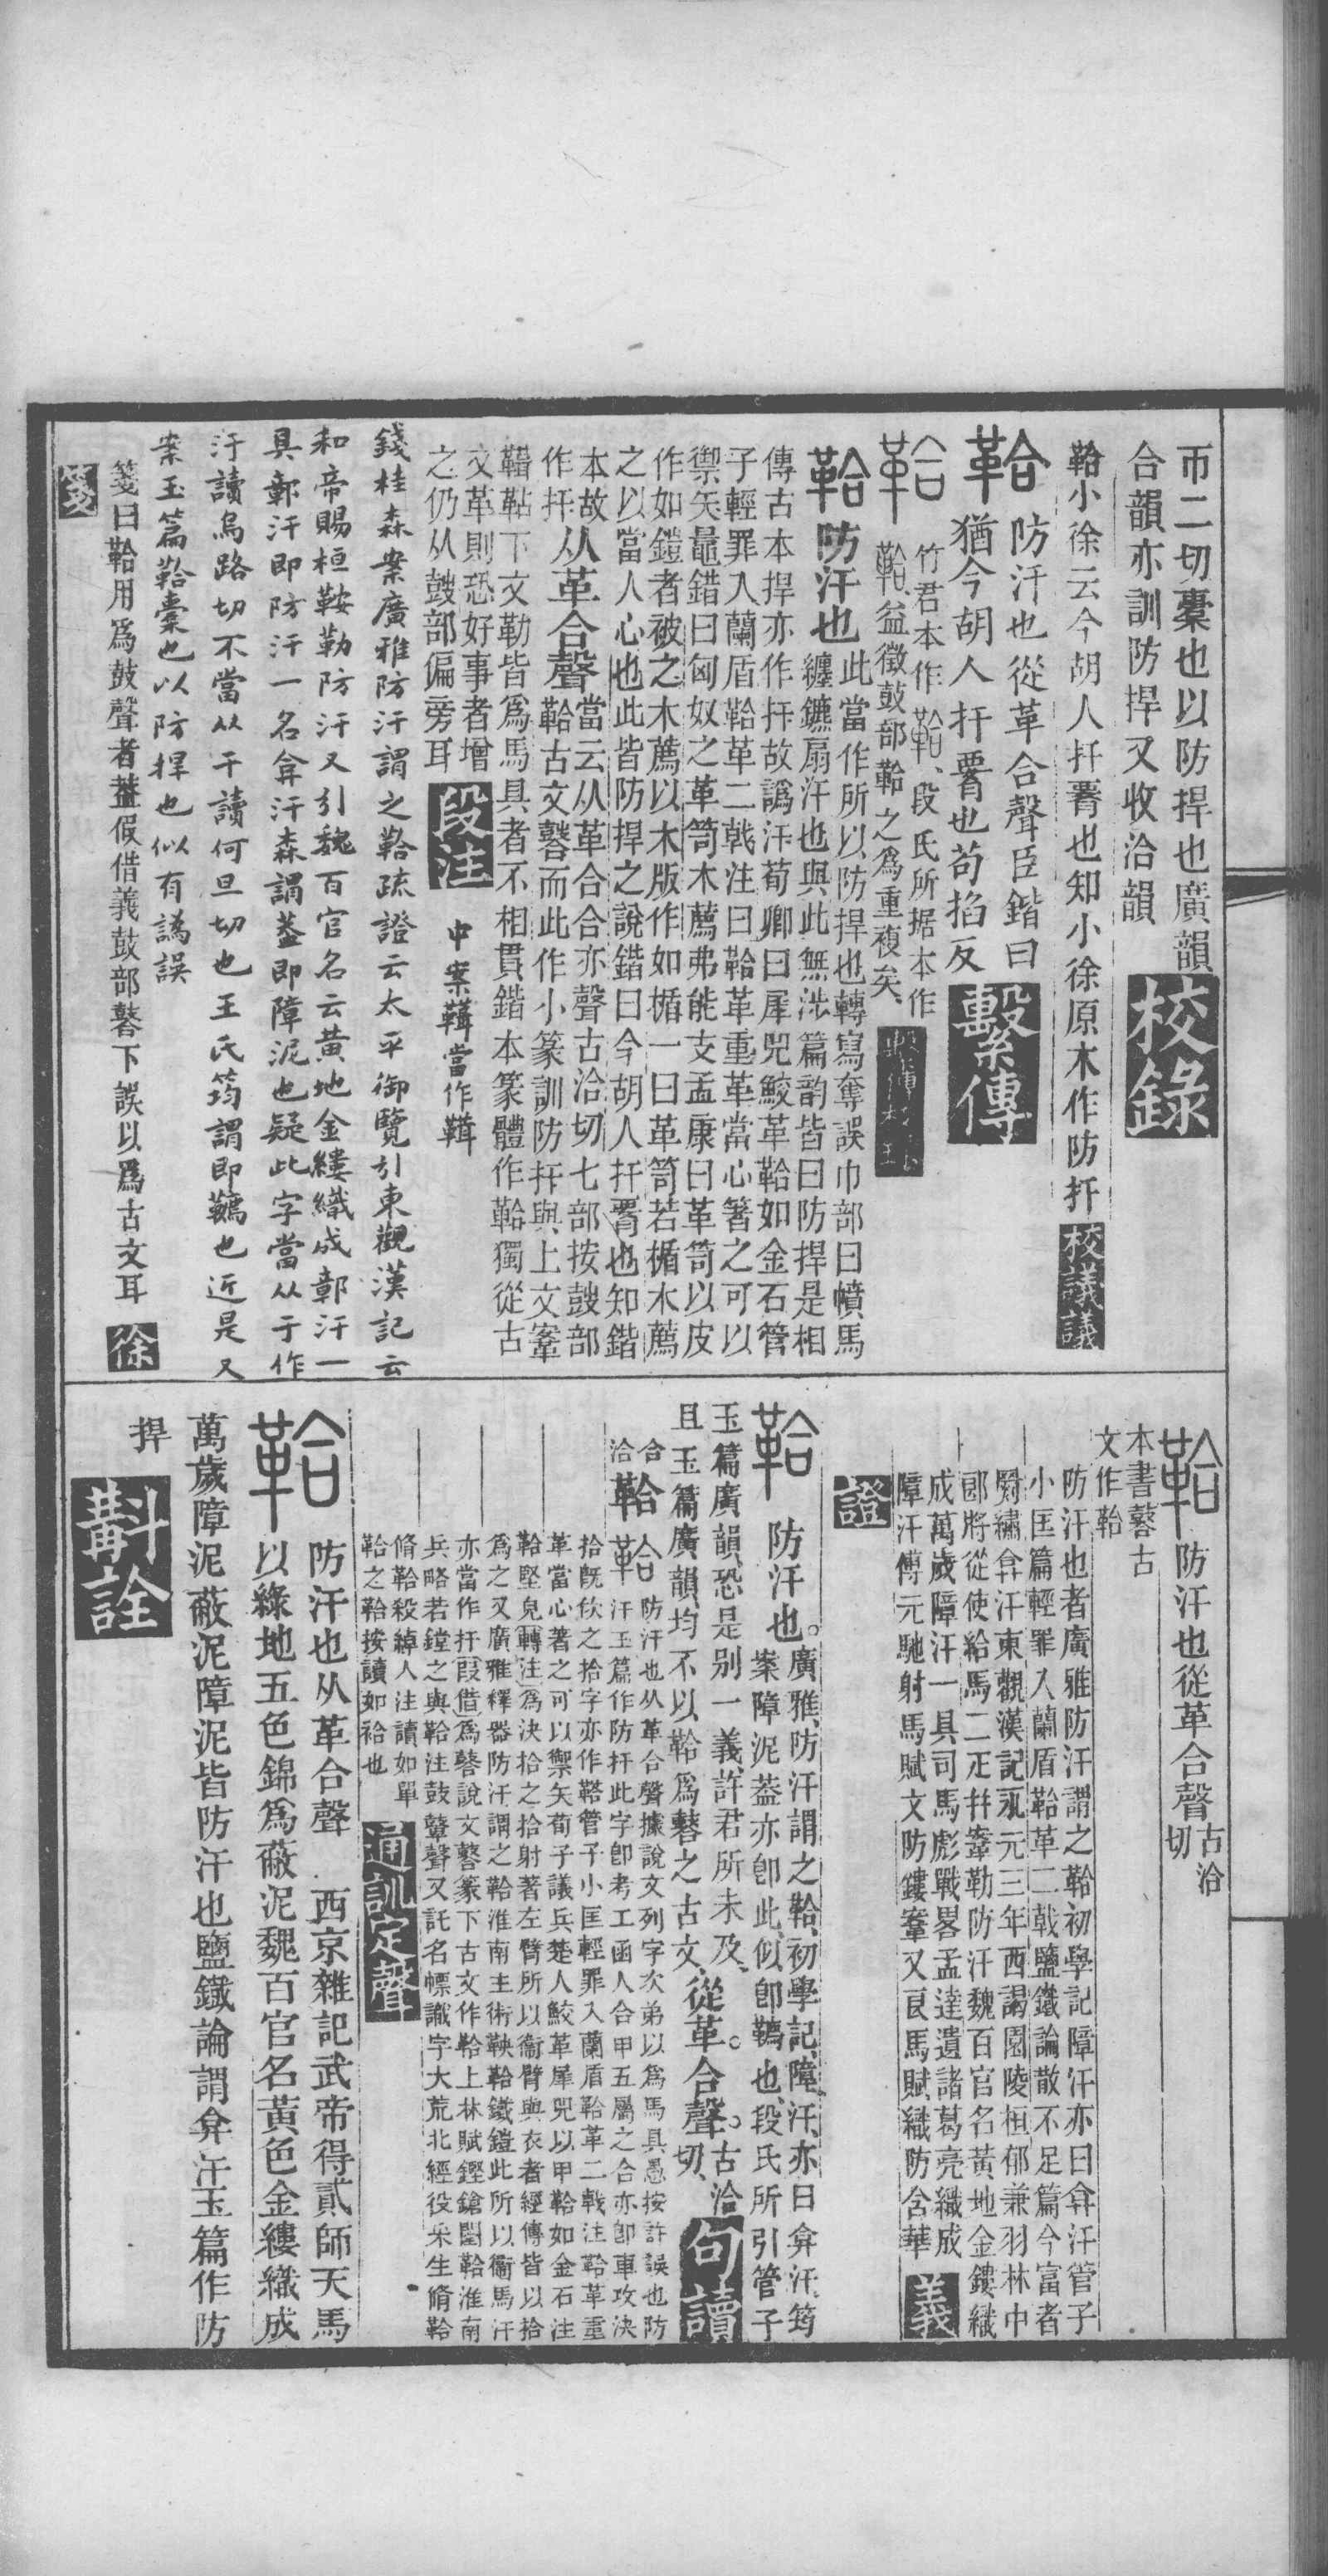 帀二切橐也以防捍也廣韻
合韻亦訓防捍又收洽韻
校錄
鞈小徐云今胡人扞䐃也知小徐原本作防扞
校議議
鞈防汗也從革合聲臣鍇曰
猶今胡人扞也苟掐反
繫傳
鞈竹君本作鞈、段氏所据本作
鞈、益徵鼓部鞈之爲重複矣、
鞈防汗也此當作所以防捍也轉寫奪誤巾部曰幩馬
纏鑣扇汗也與此無涉篇韵皆曰防捍是相
傳古本捍亦作扞故譌汗荀卿曰犀兕鮫革鞈如金石管
子輕罪入蘭盾鞈革二戟注曰鞈革重革當心箸之可以
禦矢鼂錯曰匈奴之革笥木薦弗能支孟康曰革笥以皮
作如鎧者被之木薦以木版作如楯一曰革笥若楯木薦
之以當人心也此皆防捍之說鍇曰今胡人扞也知鍇
本故作扞从革合聲當云从革合合亦聲古洽切七部按鼓部
鞈古文鼛而此作小篆訓防扞與上文鞌
鞊下文勒皆爲馬具者不相貫鍇本篆體作鞈獨從古
文革則恐好事者增
之仍从鼓部偏旁耳
段注
中案鞙當作鞙
錢桂森案廣雅防汗謂之鞈疏證云太平御覽引東觀漢記云
和帝賜桓鞍勒防汗又引魏百官名云黃地金縷織成鄣汗一
具鄣汗即防汗一名弇汗森謂蓋即障泥也疑此字當从于作
汙讀烏路切不當从干讀何旦切也王氏筠謂即韉也近是又
案玉篇鞈橐也以防捍也似有譌誤
箋曰鞈用爲鼓聲者葢假借義鼓部鼛下誤以爲古文耳
徐
箋
鞈防汗也從革合聲古洽切
本書鼛古
文作鞈
防汗也者廣雅防汗謂之鞈初學記障汗亦曰弇汗管子
小匡篇輕罪入蘭盾鞈革二戟鹽鐵論散不足篇今富者
罽繡弇汗東觀漢記永元三年西謁園陵桓郁兼羽林中
郎將從使給馬二匹幷鞌勒防汗魏百官名黃地金鏤織
成萬歲障汗一具司馬彪戰畧孟達遺諸葛亮織成
障汗傅元馳射馬賦文防鏤鞌又良馬賦織防含華
義
證
鞈防汗也。廣雅、防汗謂之鞈、初學記、障汗、亦曰弇汗、筠
案障泥葢亦卽此、似卽韉也、段氏所引管子
玉篇廣韻、恐是別一義、許君所未及、
且玉篇廣韻、均不以鞈爲鼛之古文、從革。合聲。古洽切、
句讀
合
洽
鞈
鞈防汗也从革合聲據說文列字次弟以爲馬具愚按許誤也防
汗玉篇作防扞此字卽考工函人合甲五屬之合亦卽車攻決
拾旣佽之拾字亦作䩞管子小匡輕罪入蘭盾鞈革二戟注鞈革重
革當心著之可以禦矢荀子議兵楚人鮫革犀兕以甲鞈如金石注
鞈堅皃轉注爲決拾之拾射著左臂所以衞臂與衣者經傳皆以拾
爲之又廣雅釋器防汗謂之鞈淮南主術鞅鞈鐵鎧此所以衞馬汗
亦當作扞叚借爲鼛說文鼛篆下古文作鞈上林賦鏗鎗闛鞈淮南
兵略若鏜之與鞈注鼓鼙聲又託名幖識字大荒北經役采生脩鞈
脩鞈殺綽人注讀如單
鞈之鞈按讀如袷也
通訓定聲
鞈防汗也从革合聲　西京雜記武帝得貳師天馬
以綠地五色錦爲蔽泥魏百官名黃色金縷織成
萬歲障泥蔽泥障泥皆防汗也鹽鐵論謂弇汗玉篇作防
捍
斠詮